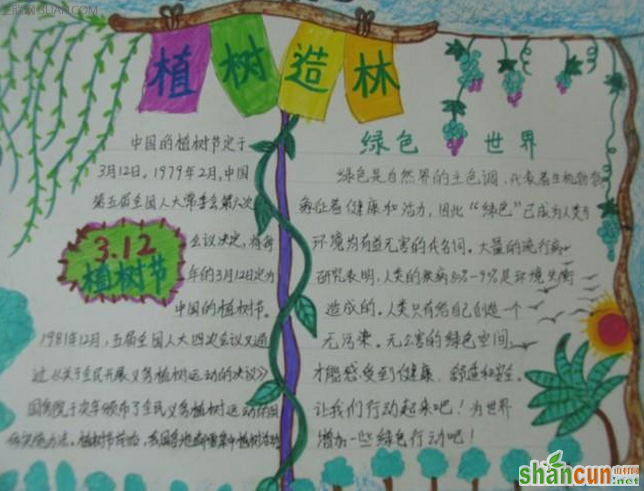 植树造林
中国的植树节定于
3月12日。1979年2月,中国
第五届全国人大常委会第六次
会议决定,将每
年的3月12日定为
中国的植树节。
3.12
植树节
1981年12月,五届全国人大四次会议又通
过《关于全民开展义务植树运动的决议》
国务院于次年颁布了全民义务植树运动的
实施办法。植树节前后,我国各地都要集中植树
绿色世界
绿色是自然界的主色调,代表着生机勃勃
象征着健康和活力,因此“绿色”已成为人类与
环境均有益无害的代名词。大量的流行病
研究表明,人类的疾病80%-9%是环境失衡
造成的。人类只有给自己创造一个
无污染、无公害的绿色空间,
才能感受到健康、舒适和安全。
让我们行动起来吧!为世界
增加一些绿色行动吧!
shancun
.net
山村网